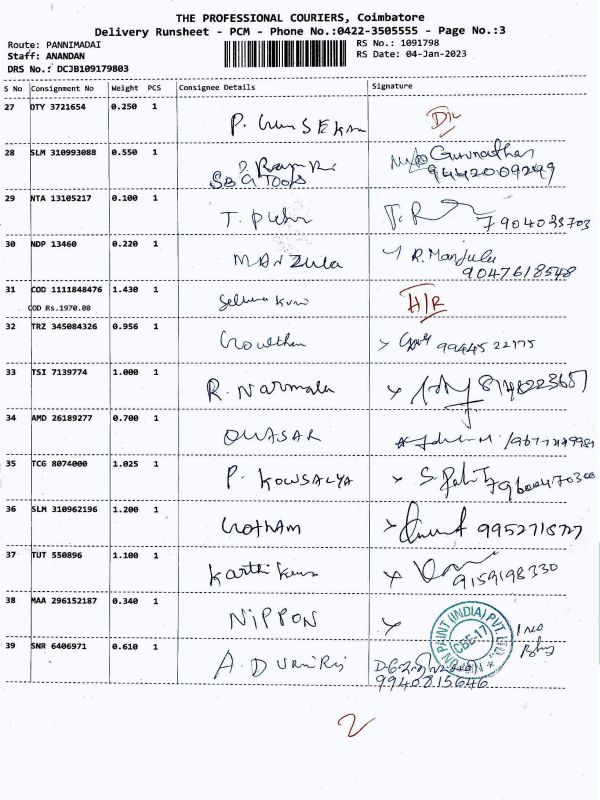 THE PROFESSIONAL COURIERS, Coimbatore
Delivery Runsheet - PCM - Phone No.:0422-3505555 - Page No.:3
Route: PANNIMADAI
RS No.: 1091798
Staff: ANANDAN
RS Date: 04-Jan-2023
DRS No.: DCJB109179803
S No Consignment No Weight PCS Consignee Details Signature
27 OTY 3721654 0.250 1
P. SEKAR
28 SLM 310993088 0.550 1
Gurunathan
SB G TOOLS 9442009249
29 NTA 13105217 0.100 1
T. T. R
7904035703
30 NDP 13460 0.220 1
MANZULA R. Manjula
9047618548
31 COD 1111848476 1.430 1
COD Rs.1970.00
Selvakumar H/R
32 TRZ 345084326 0.956 1
Gowtham 99445 22175
33 TSI 7139774 1.000 1
R. Narmala 8148223657
34 AMD 26189277 0.700 1
QUASAR
35 TCG 8074000 1.025 1
P. KOWSALYA S. 9600470300
36 SLM 310962196 1.200 1
GOTHAM 9952718727
37 TUT 550896 1.100 1
Karthikeyan
9159198330
38 MAA 296152187 0.340 1
NIPPON
NIPPON PAINT (INDIA) PVT. LTD.
CBE-17
39 SNR 6406971 0.610 1
A. D
9940815646
2